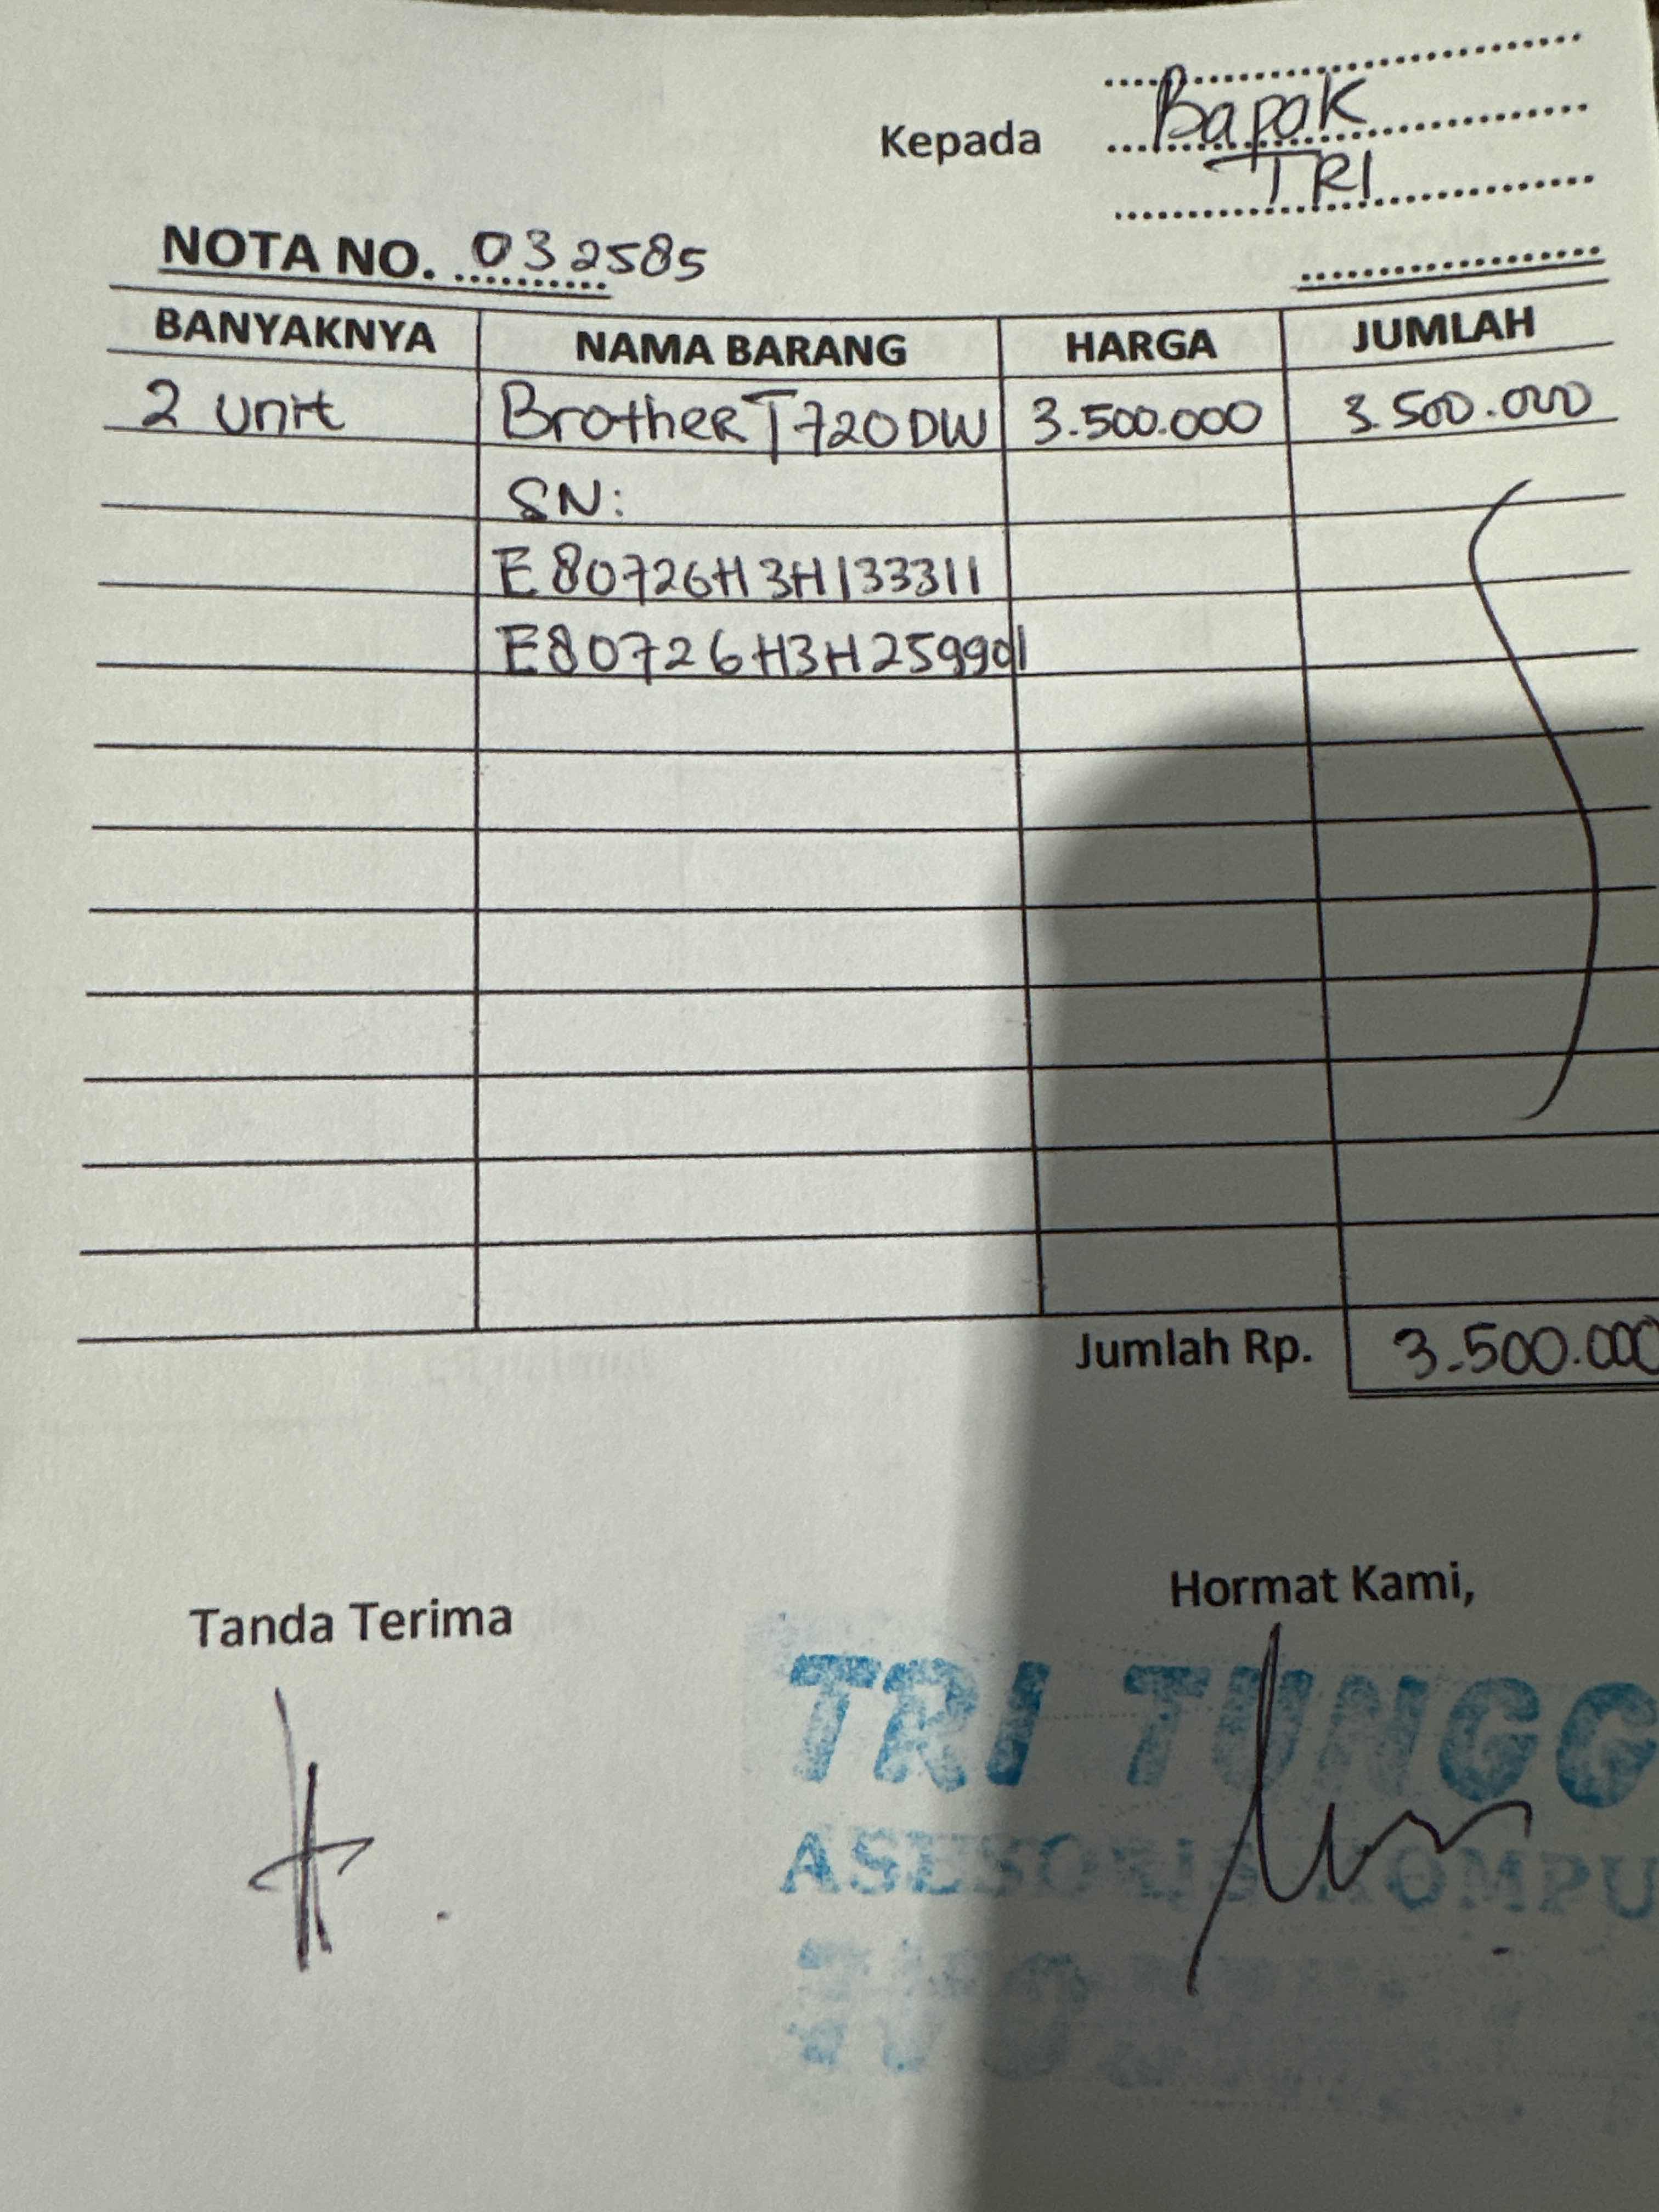 Kepada Bapak
TRI
NOTA NO. 032585
BANYAKNYA NAMA BARANG HARGA JUMLAH
2 unit Brother T720DW 3.500.000 3.500.000
SN:
E80726H3H133311
E80726H3H259901
Jumlah Rp. 3.500.000
Tanda Terima Hormat Kami,
TRI TUNGG
ASESORIS KOMPU